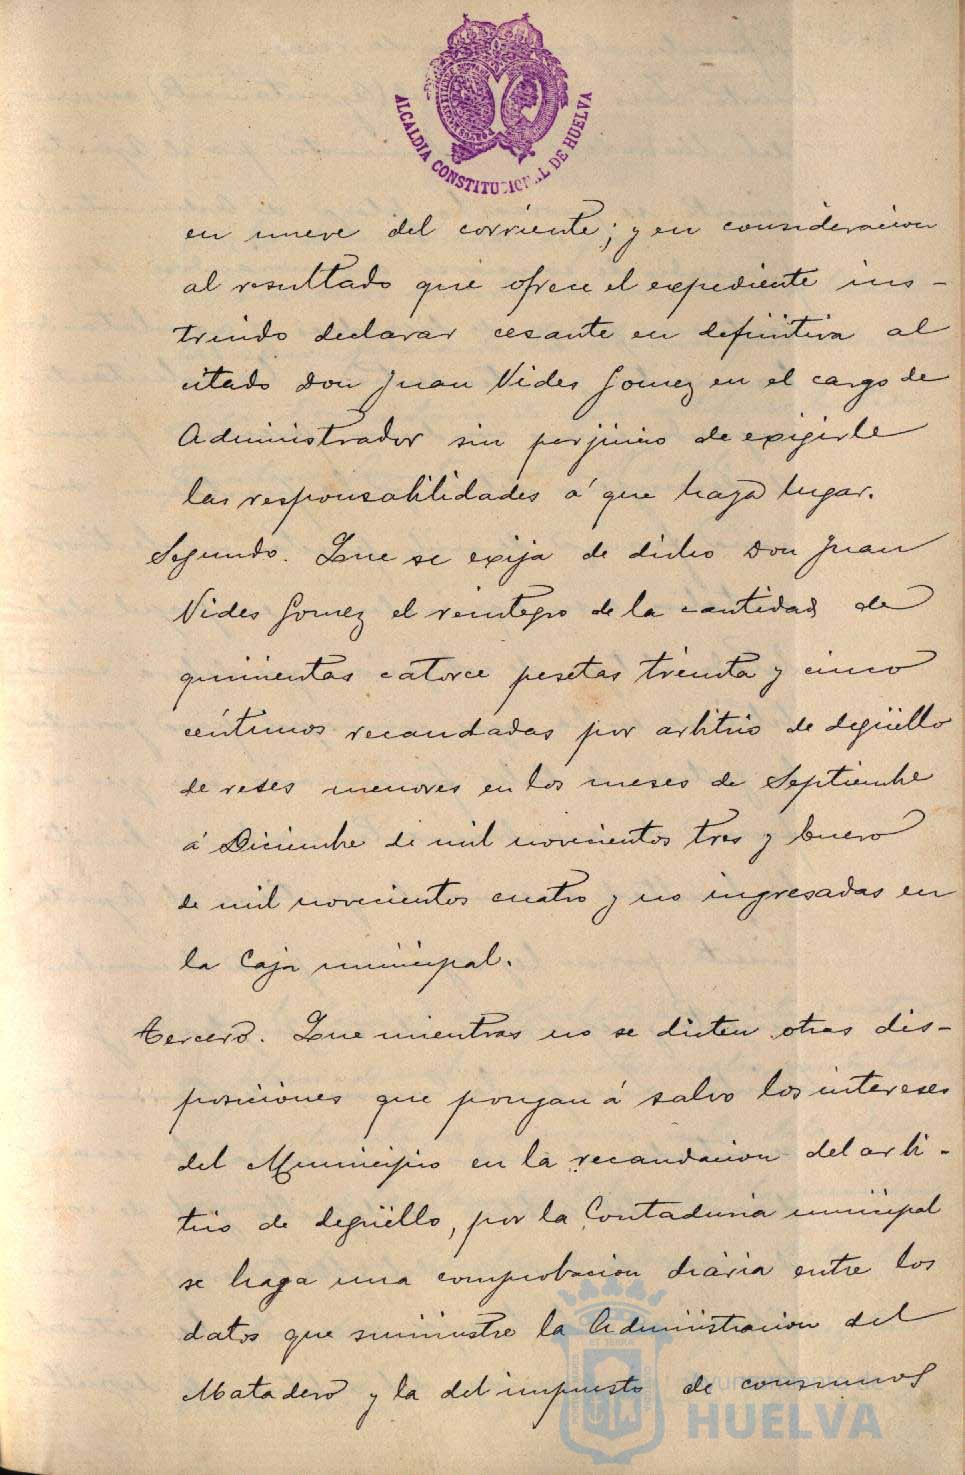 ALCALDIA CONSTITUCIONAL DE HUELVA
en nueve del corriente; y en consideracion
al resultado que ofrece el expediente ins-
truido declarar cesante en definitiva al
citado Don Juan Vides Gomez en el cargo de
Administrador sin perjuicio de exigirle
las responsabilidades á que haya lugar.
Segundo. Que se exija de dicho Don Juan
Vides Gomez el reintegro de la cantidad de
quinientas catorce pesetas treinta y cinco
céntimos recaudadas por arbitrio de degüello
de reses menores en los meses de Septiembre
á Diciembre de mil novecientos tres y Enero
de mil novecientos cuatro y no ingresadas en
la Caja municipal.
Tercero. Que mientras no se dicten otras dis-
posiciones que pongan á salvo los intereses
del Municipio en la recaudacion del arbi-
trio de degüello, por la Contaduria municipal
se haga una comprobacion diária entre los
datos que suministre la Administracion del
Matadero y la del impuesto de consumos
HUELVA